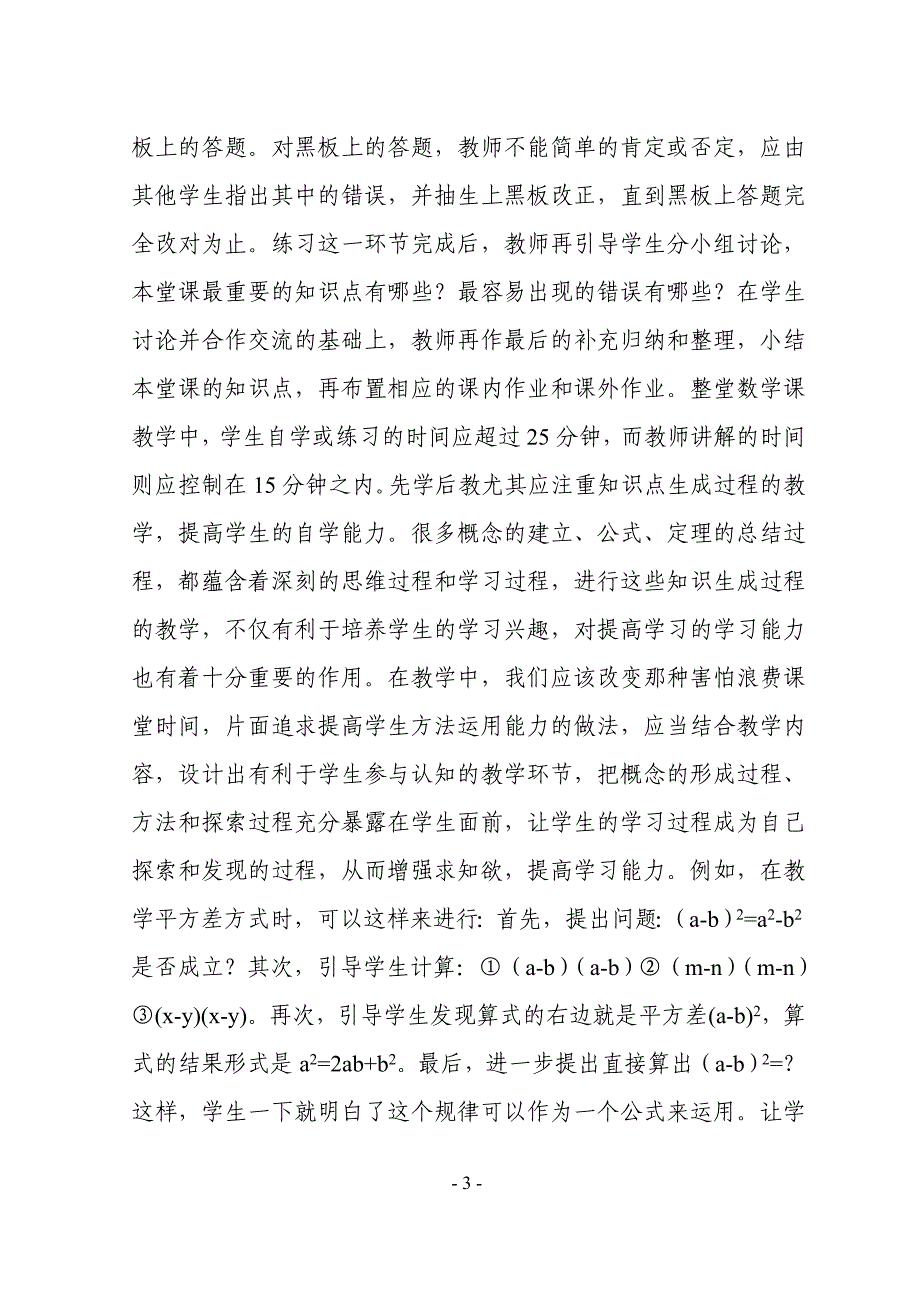 板上的答题。对黑板上的答题，教师不能简单的肯定或否定，应由
其他学生指出其中的错误，并抽生上黑板改正，直到黑板上答题完
全改对为止。练习这一环节完成后，教师再引导学生分小组讨论，
本堂课最重要的知识点有哪些？最容易出现的错误有哪些？在学生
讨论并合作交流的基础上，教师再作最后的补充归纳和整理，小结
本堂课的知识点，再布置相应的课内作业和课外作业。整堂数学课
教学中，学生自学或练习的时间应超过25分钟，而教师讲解的时间
则应控制在15分钟之内。先学后教尤其应注重知识点生成过程的教
学，提高学生的自学能力。很多概念的建立、公式、定理的总结过
程，都蕴含着深刻的思维过程和学习过程，进行这些知识生成过程
的教学，不仅有利于培养学生的学习兴趣，对提高学习的学习能力
也有着十分重要的作用。在教学中，我们应该改变那种害怕浪费课
堂时间，片面追求提高学生方法运用能力的做法，应当结合教学内
容，设计出有利于学生参与认知的教学环节，把概念的形成过程、
方法和探索过程充分暴露在学生面前，让学生的学习过程成为自己
探索和发现的过程，从而增强求知欲，提高学习能力。例如，在教
学平方差方式时，可以这样来进行：首先，提出问题：（a-b）²=a²-b²
是否成立？其次，引导学生计算：①（a-b）（a-b）②（m-n）（m-n）
③(x-y)(x-y)。再次，引导学生发现算式的右边就是平方差(a-b)²，算
式的结果形式是 a²=2ab+b²。最后，进一步提出直接算出（a-b）²=？
这样，学生一下就明白了这个规律可以作为一个公式来运用。让学
- 3 -